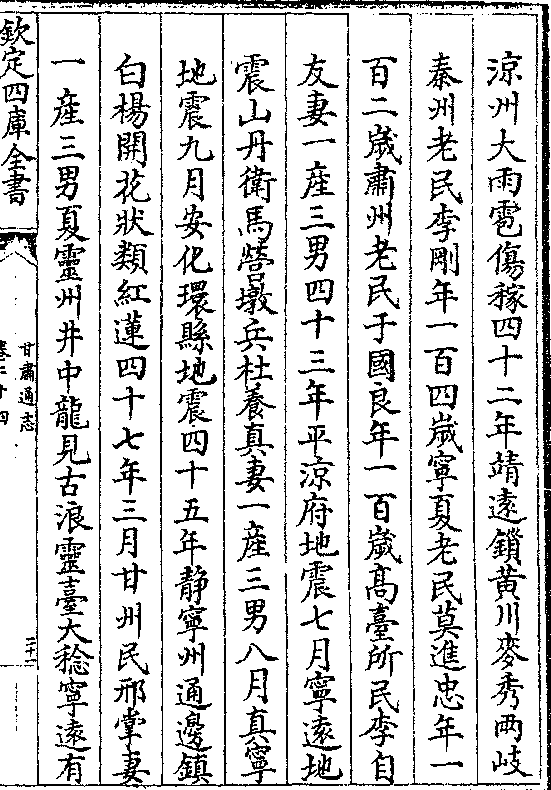 涼州大雨雹傷稼四十二年靖遠鎖黃川麥秀兩岐
秦州老民李剛年一百四歲寧夏老民莫進忠年一
百二歲肅州老民于國良年一百歲高臺所民李自
友妻一產三男四十三年平涼府地震七月寧遠地
震山丹衛馬營墩兵杜養真妻一產三男八月真寧
地震九月安化環縣地震四十五年靜寧州通邊鎮
白楊開花狀類紅蓮四十七年三月甘州民邢掌妻
一產三男夏靈州井中龍見古浪靈臺大稔寧遠有
欽定四庫全書
甘肅通志
卷二十四